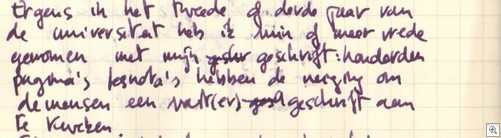 Ergens in het tweede of derde jaar van
de universiteit heb ik min of meer vrede
genomen met mijn geschrift: honderden
pagina's lesnota's hebben de neiging om
de mensen een geschrift aan
te kweken.